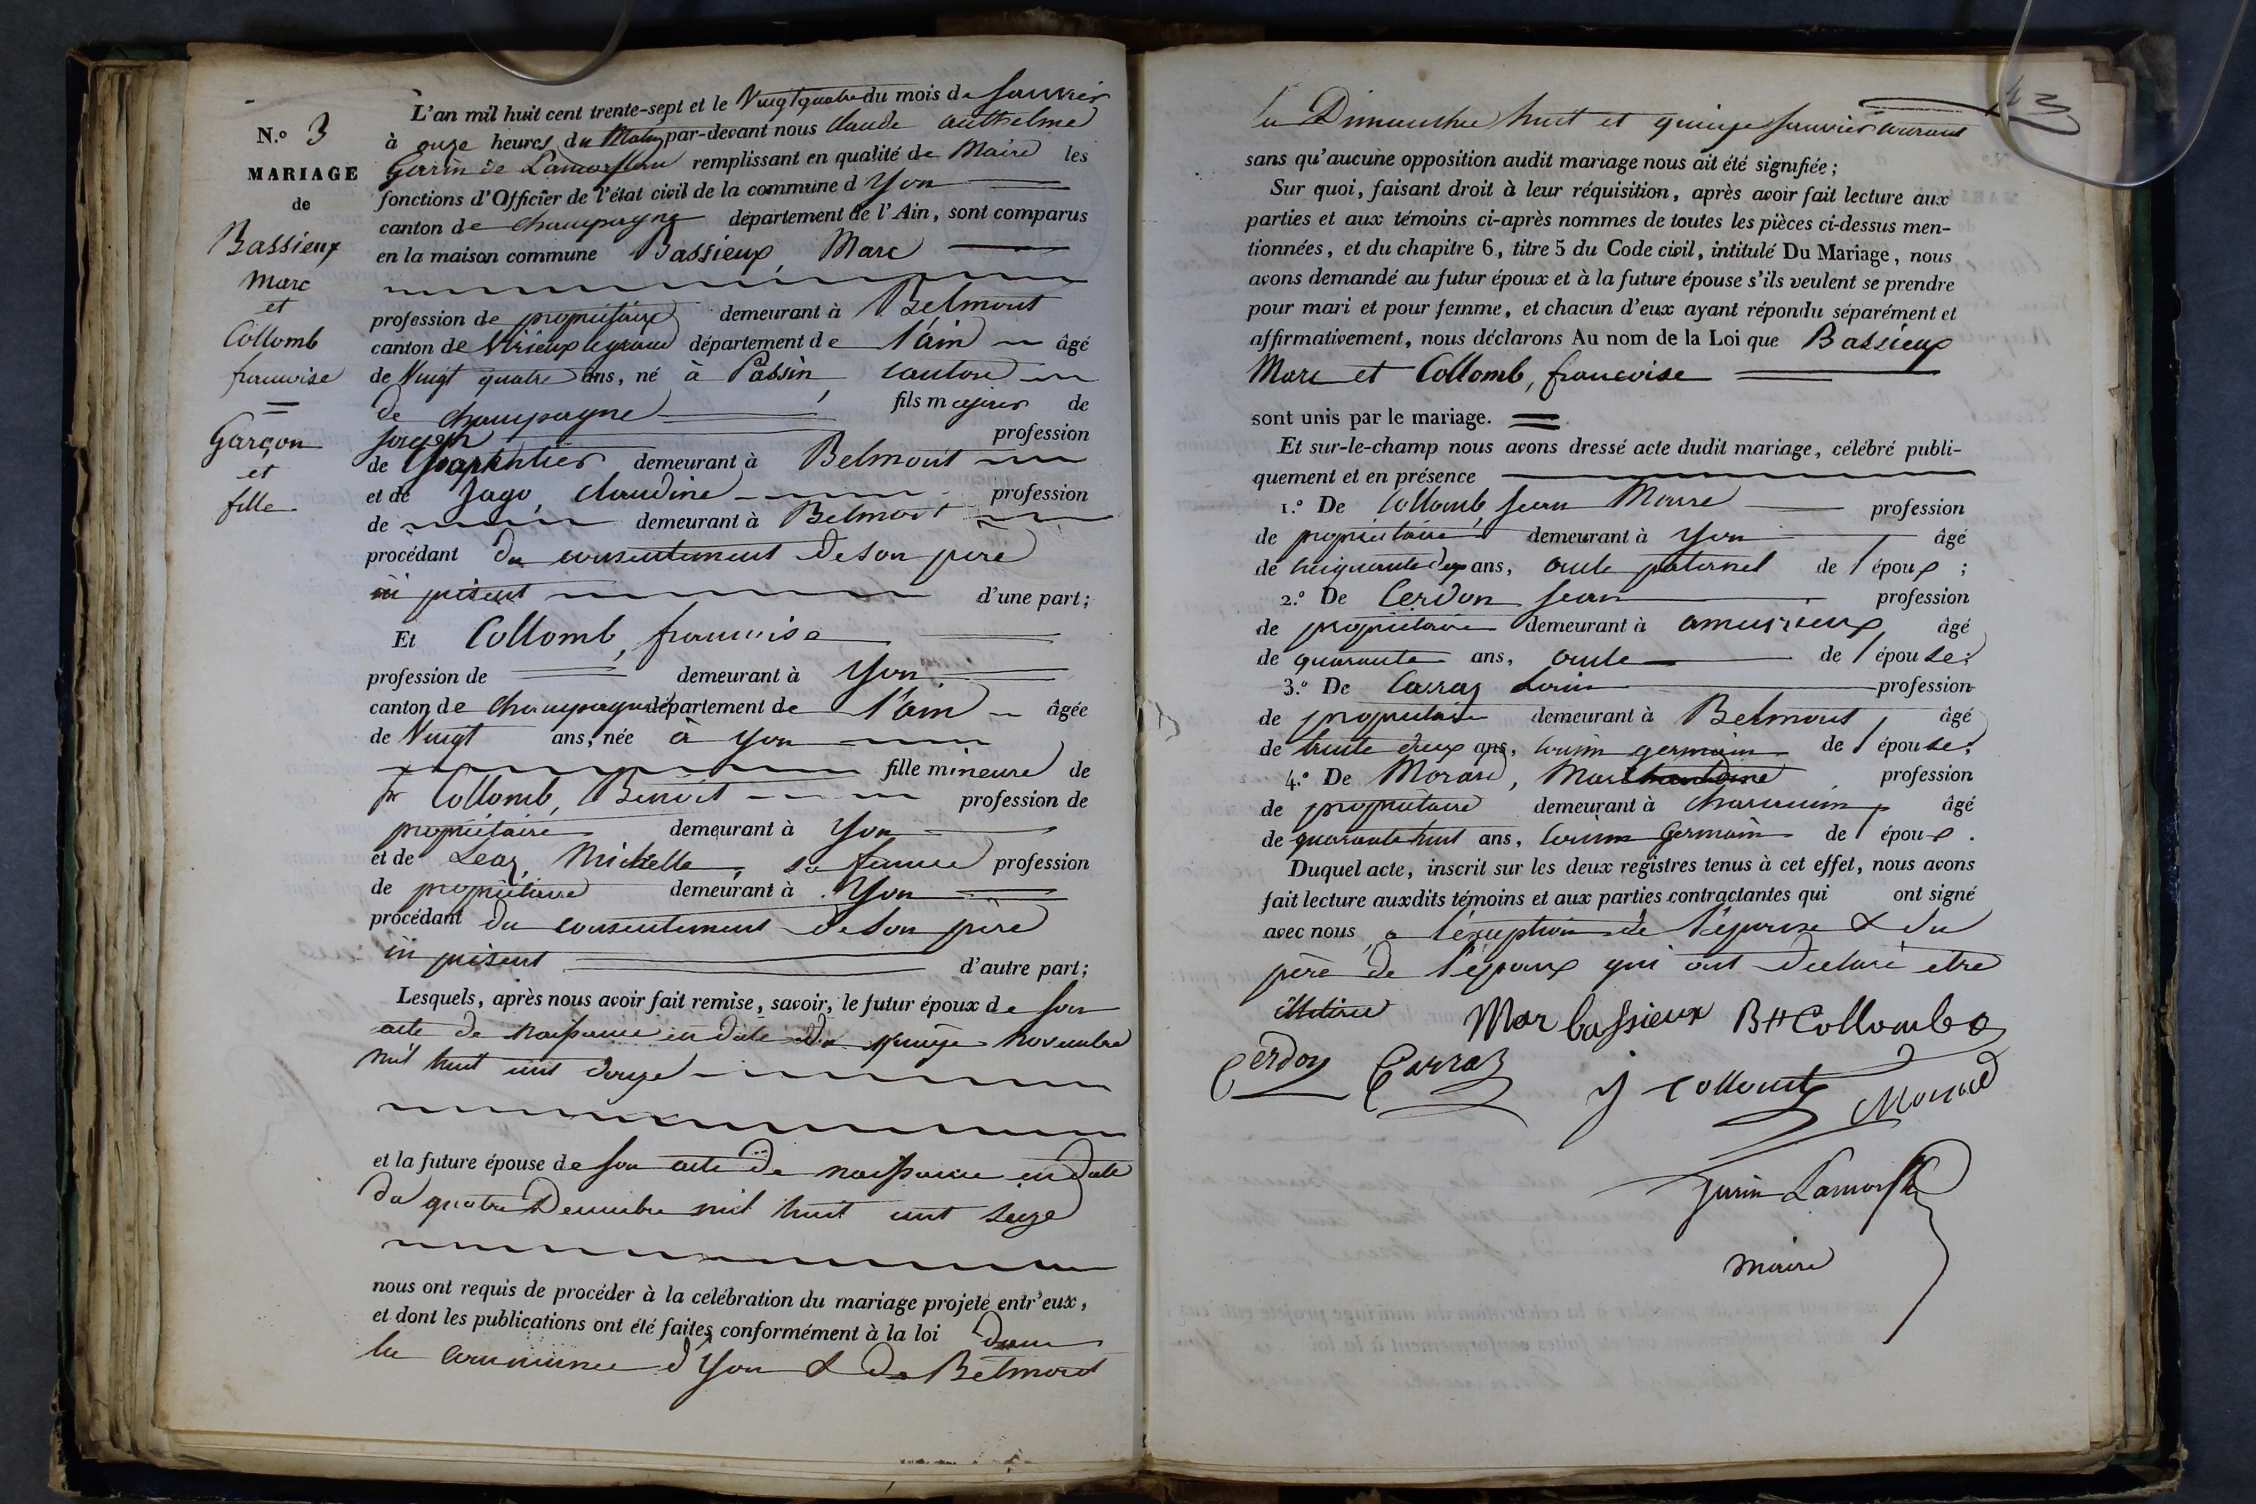 N.o 3
MARIAGE
de
Bassieux
Marc
et
Collomb
francoise
Garçon
et
fille
L'an mil huit cent trente-sept et le Vingt quatre du mois de Janvier
à onze heures du Matin par-devant nous Claude Anthelme
Garin de Lamorflan remplissant en qualité de Maire les
fonctions d'Officier de l'état civil de la commune d Yon
canton de Champagne département de l'Ain, sont comparus
en la maison commune Bassieux, Marc
profession de propriétaire demeurant à Belmont
canton de Virieux le grand département de l'ain âgé
de Vingt quatre ans, né à Passin, canton
de Champagne fils majeur de
Joseph profession
de Charpentier demeurant à Belmont
et de Jago, Claudine profession
de demeurant à Belmont
procédant du consentement de son pere
ici présent d'une part;
Et Collomb, francoise
profession de demeurant à Yon
canton de Champagne département de l'ain âgée
de Vingt ans, née à Yon
fille mineure de
Collomb, Benoit profession de
propriétaire demeurant à Yon
et de Michelle, sa femme profession
de propriétaire demeurant à Yon
procédant du consentement de son père
ici présent d'autre part;
Lesquels, après nous avoir fait remise, savoir, le futur époux de son
acte de naissance en date du quinze novembre
mil huit cent douze
et la future épouse de son acte de naissance en date
du quatre Decembre mil huit cent seize
nous ont requis de procéder à la celébration du mariage projeté entr'eux,
et dont les publications ont été faites conformément à la loi dans
la commune d'Yon & de Belmont
43
les Dimanche huit et quinze Janvier courant
sans qu'aucune opposition audit mariage nous ait été signifiée;
Sur quoi, faisant droit à leur réquisition, après avoir fait lecture aux
parties et aux témoins ci-après nommes de toutes les pièces ci-dessus men-
tionnées, et du chapitre 6, titre 5 du Code civil, intitulé Du Mariage, nous
avons demandé au futur époux et à la future épouse s'ils veulent se prendre
pour mari et pour femme, et chacun d'eux ayant répondu séparément et
affirmativement, nous déclarons Au nom de la Loi que Bassieux
Marc et Collomb, francoise
sont unis par le mariage.
Et sur-le-champ nous avons dressé acte dudit mariage, célébré publi-
quement et en présence
1.o De Collomb, Jean Marie profession
de propriétaire demeurant à Yon âgé
de cinquante deux ans, oncle paternel de l'époux;
2.o De Cerdon Jean profession
de propriétaire demeurant à ameyzieux, âgé
de quarante ans, oncle de l'épouse;
3.o De Carraz Louis profession
de propriétaire demeurant à Belmont, âgé
de trente deux ans, cousin germain de l'épouse;
4.o De Morard, Marc profession
de propriétaire demeurant à âgé
de quarante huit ans, cousin Germain de l'époux.
Duquel acte, inscrit sur les deux registres tenus à cet effet, nous avons
fait lecture auxdits témoins et aux parties contractantes qui ont signé
avec nous a l'exception de l'épouse & du
père de l'époux qui ont declaré etre
illitéré
Mar bassieux Bt Collomb
Cerdon Carraz J Collomb Morard
Garin Lamorflan
Maire